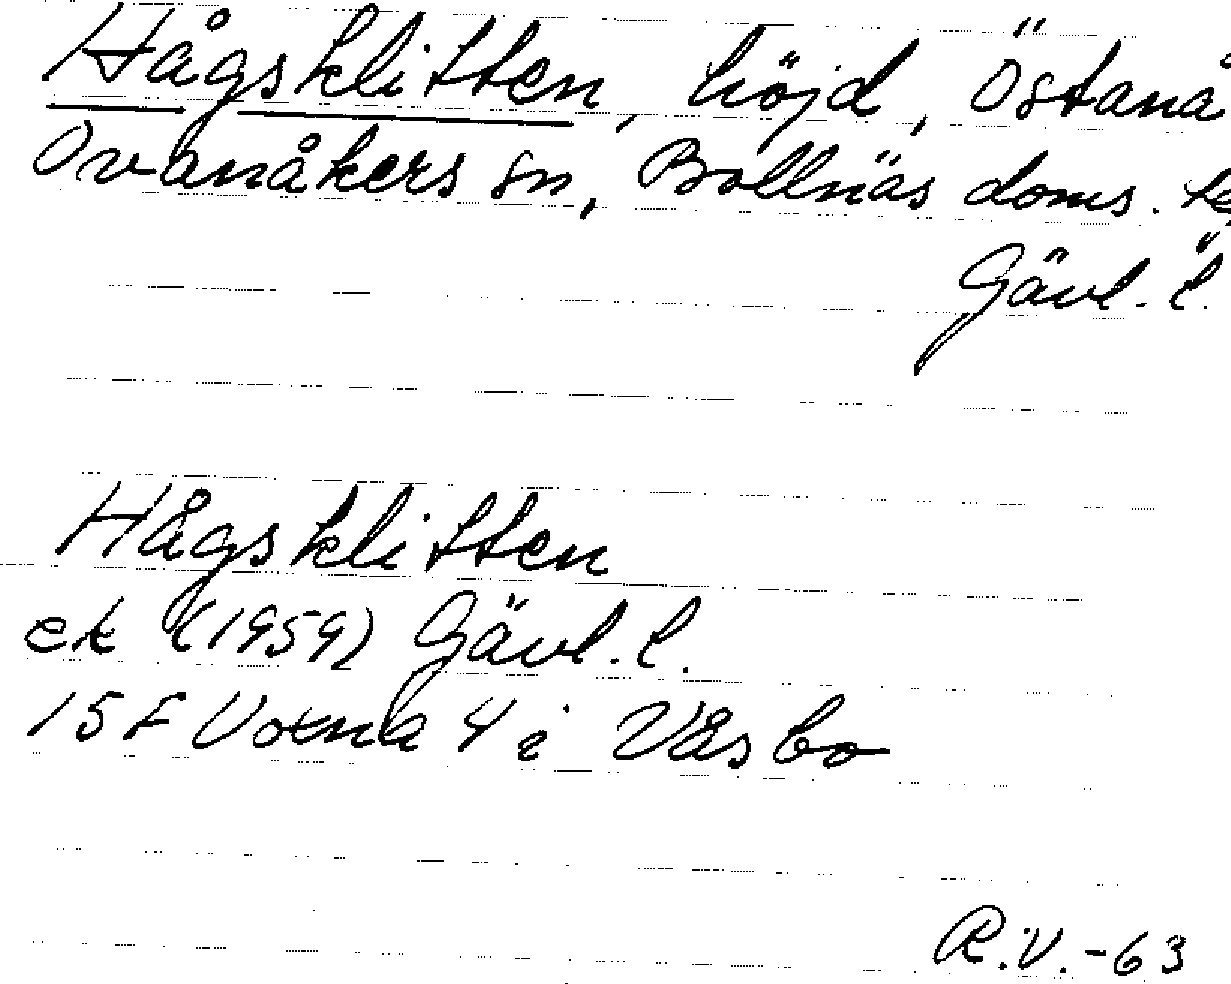 Hågsklitten, höjd, Östanå
Ovanåkers sn, Bollnäs doms.
Gävl. l.
Hågsklitten
ek (1959) Gävl. l.
15F Voxna 4 i Våsbo
R.V.-63